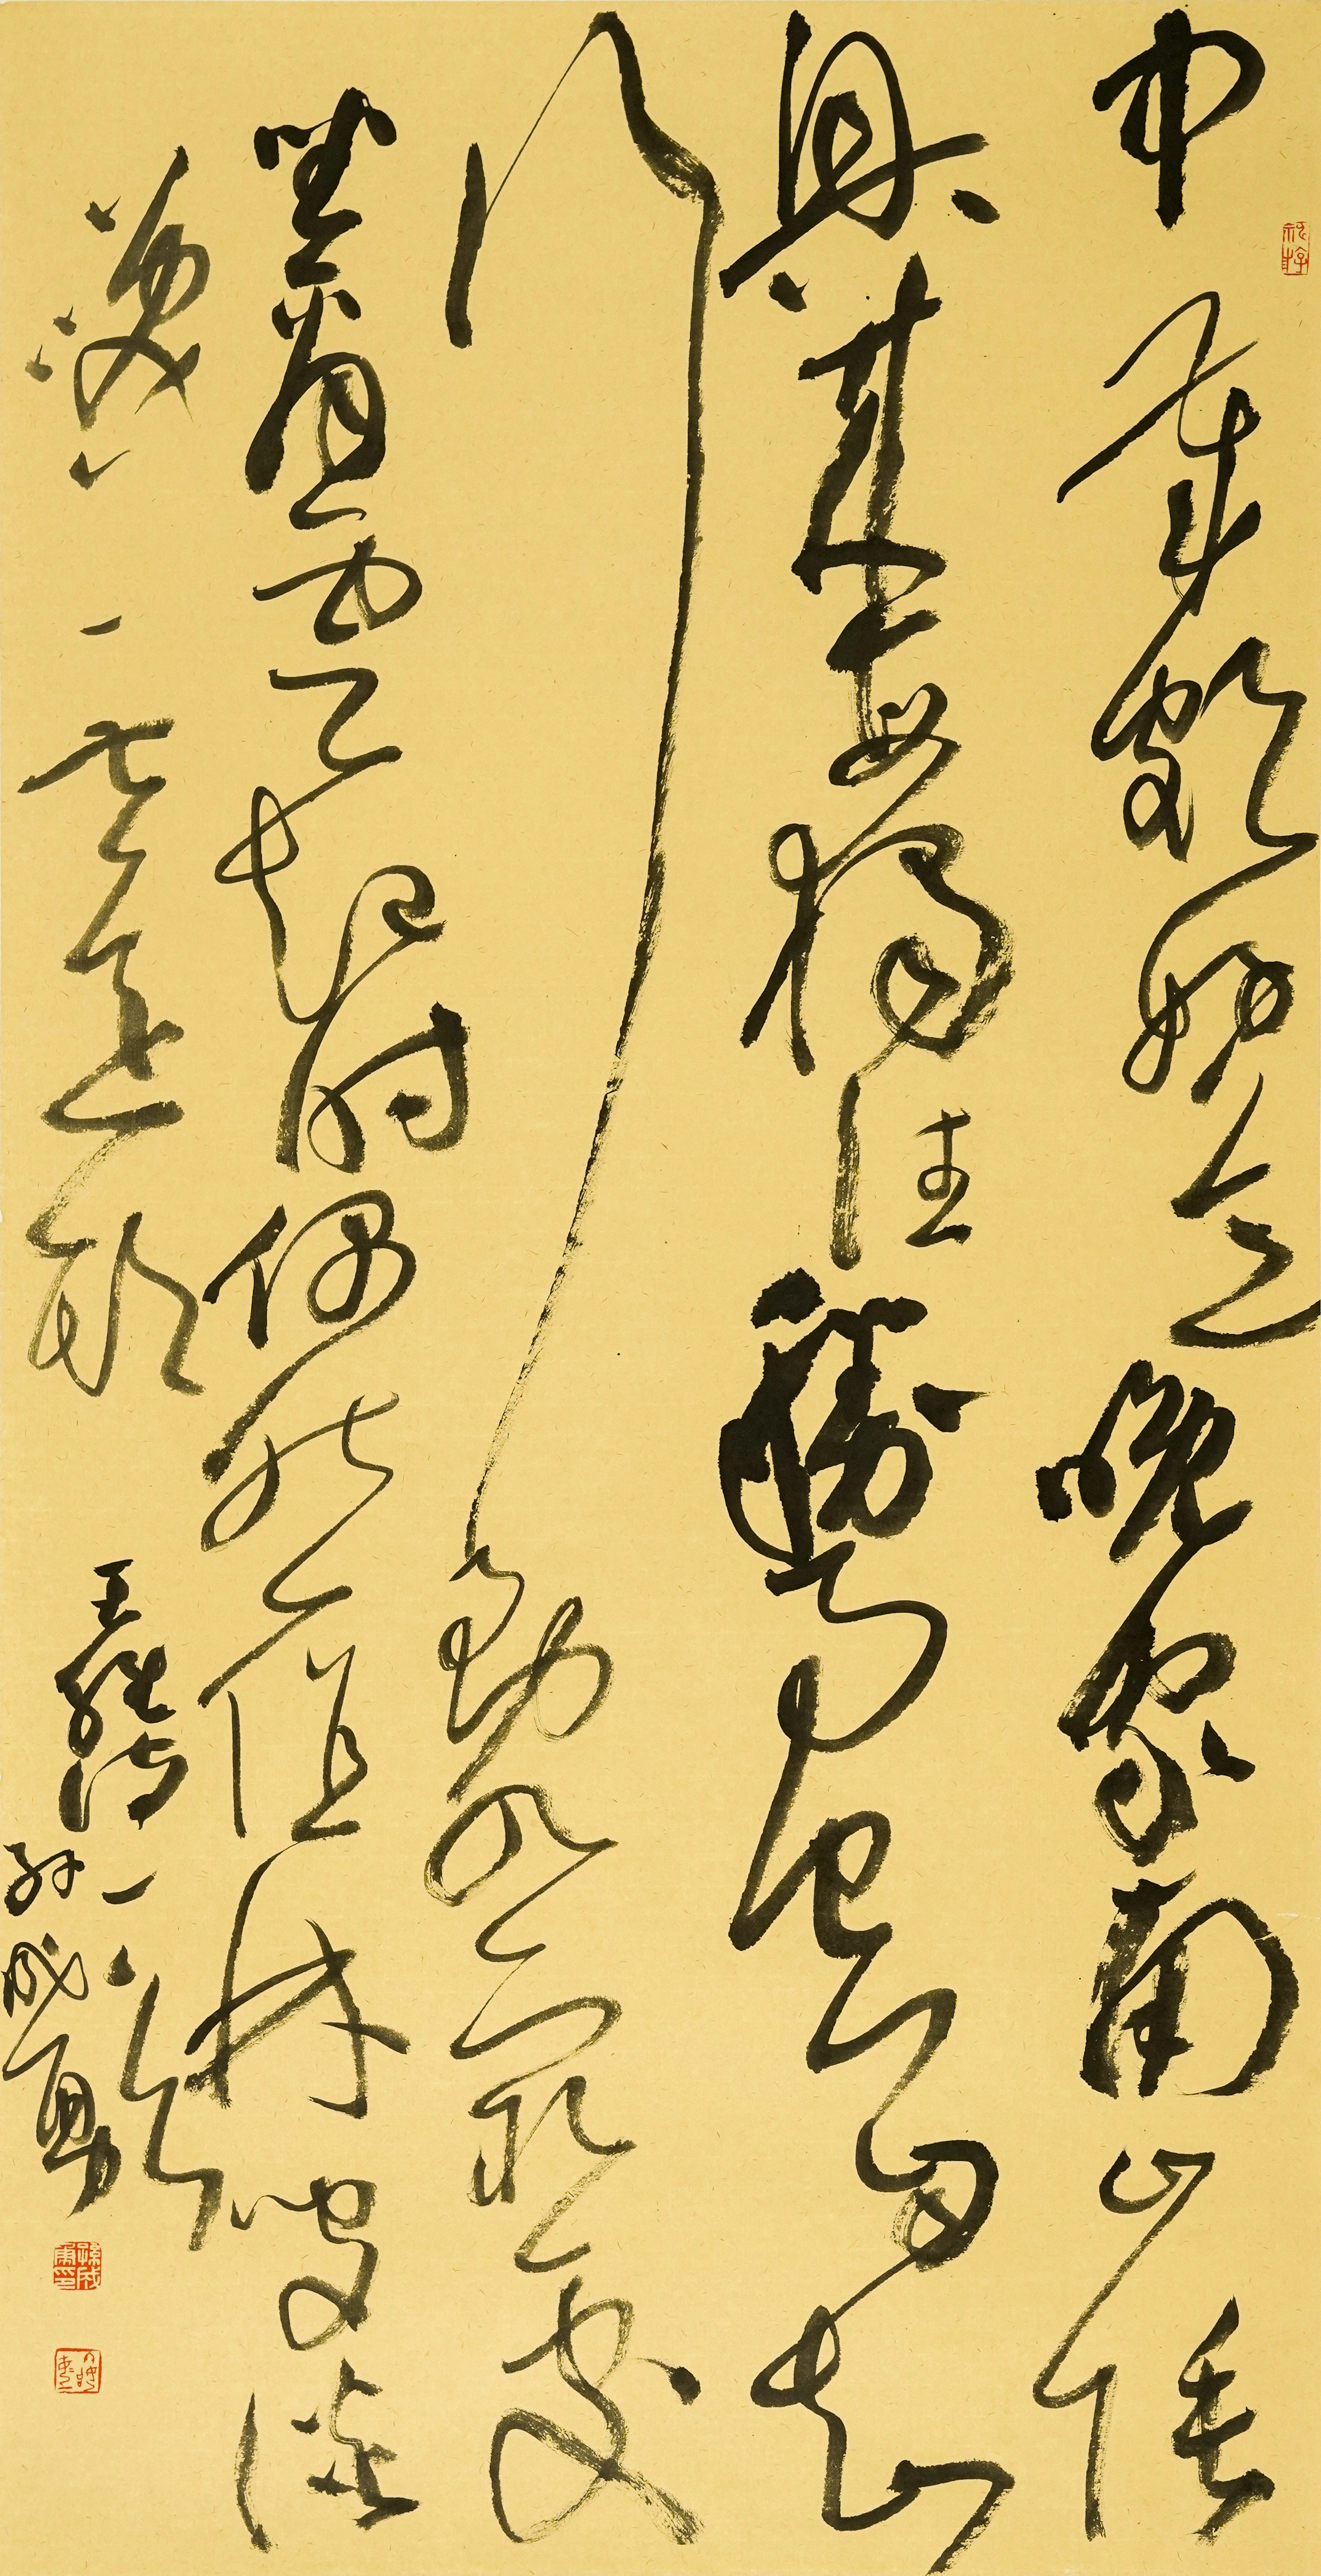 中歲頗好道晚家南山陲
興來每獨往勝事空自知
行到水窮處
坐看雲起時偶然值林叟談
笑無還期 王維詩一首
孫成勇